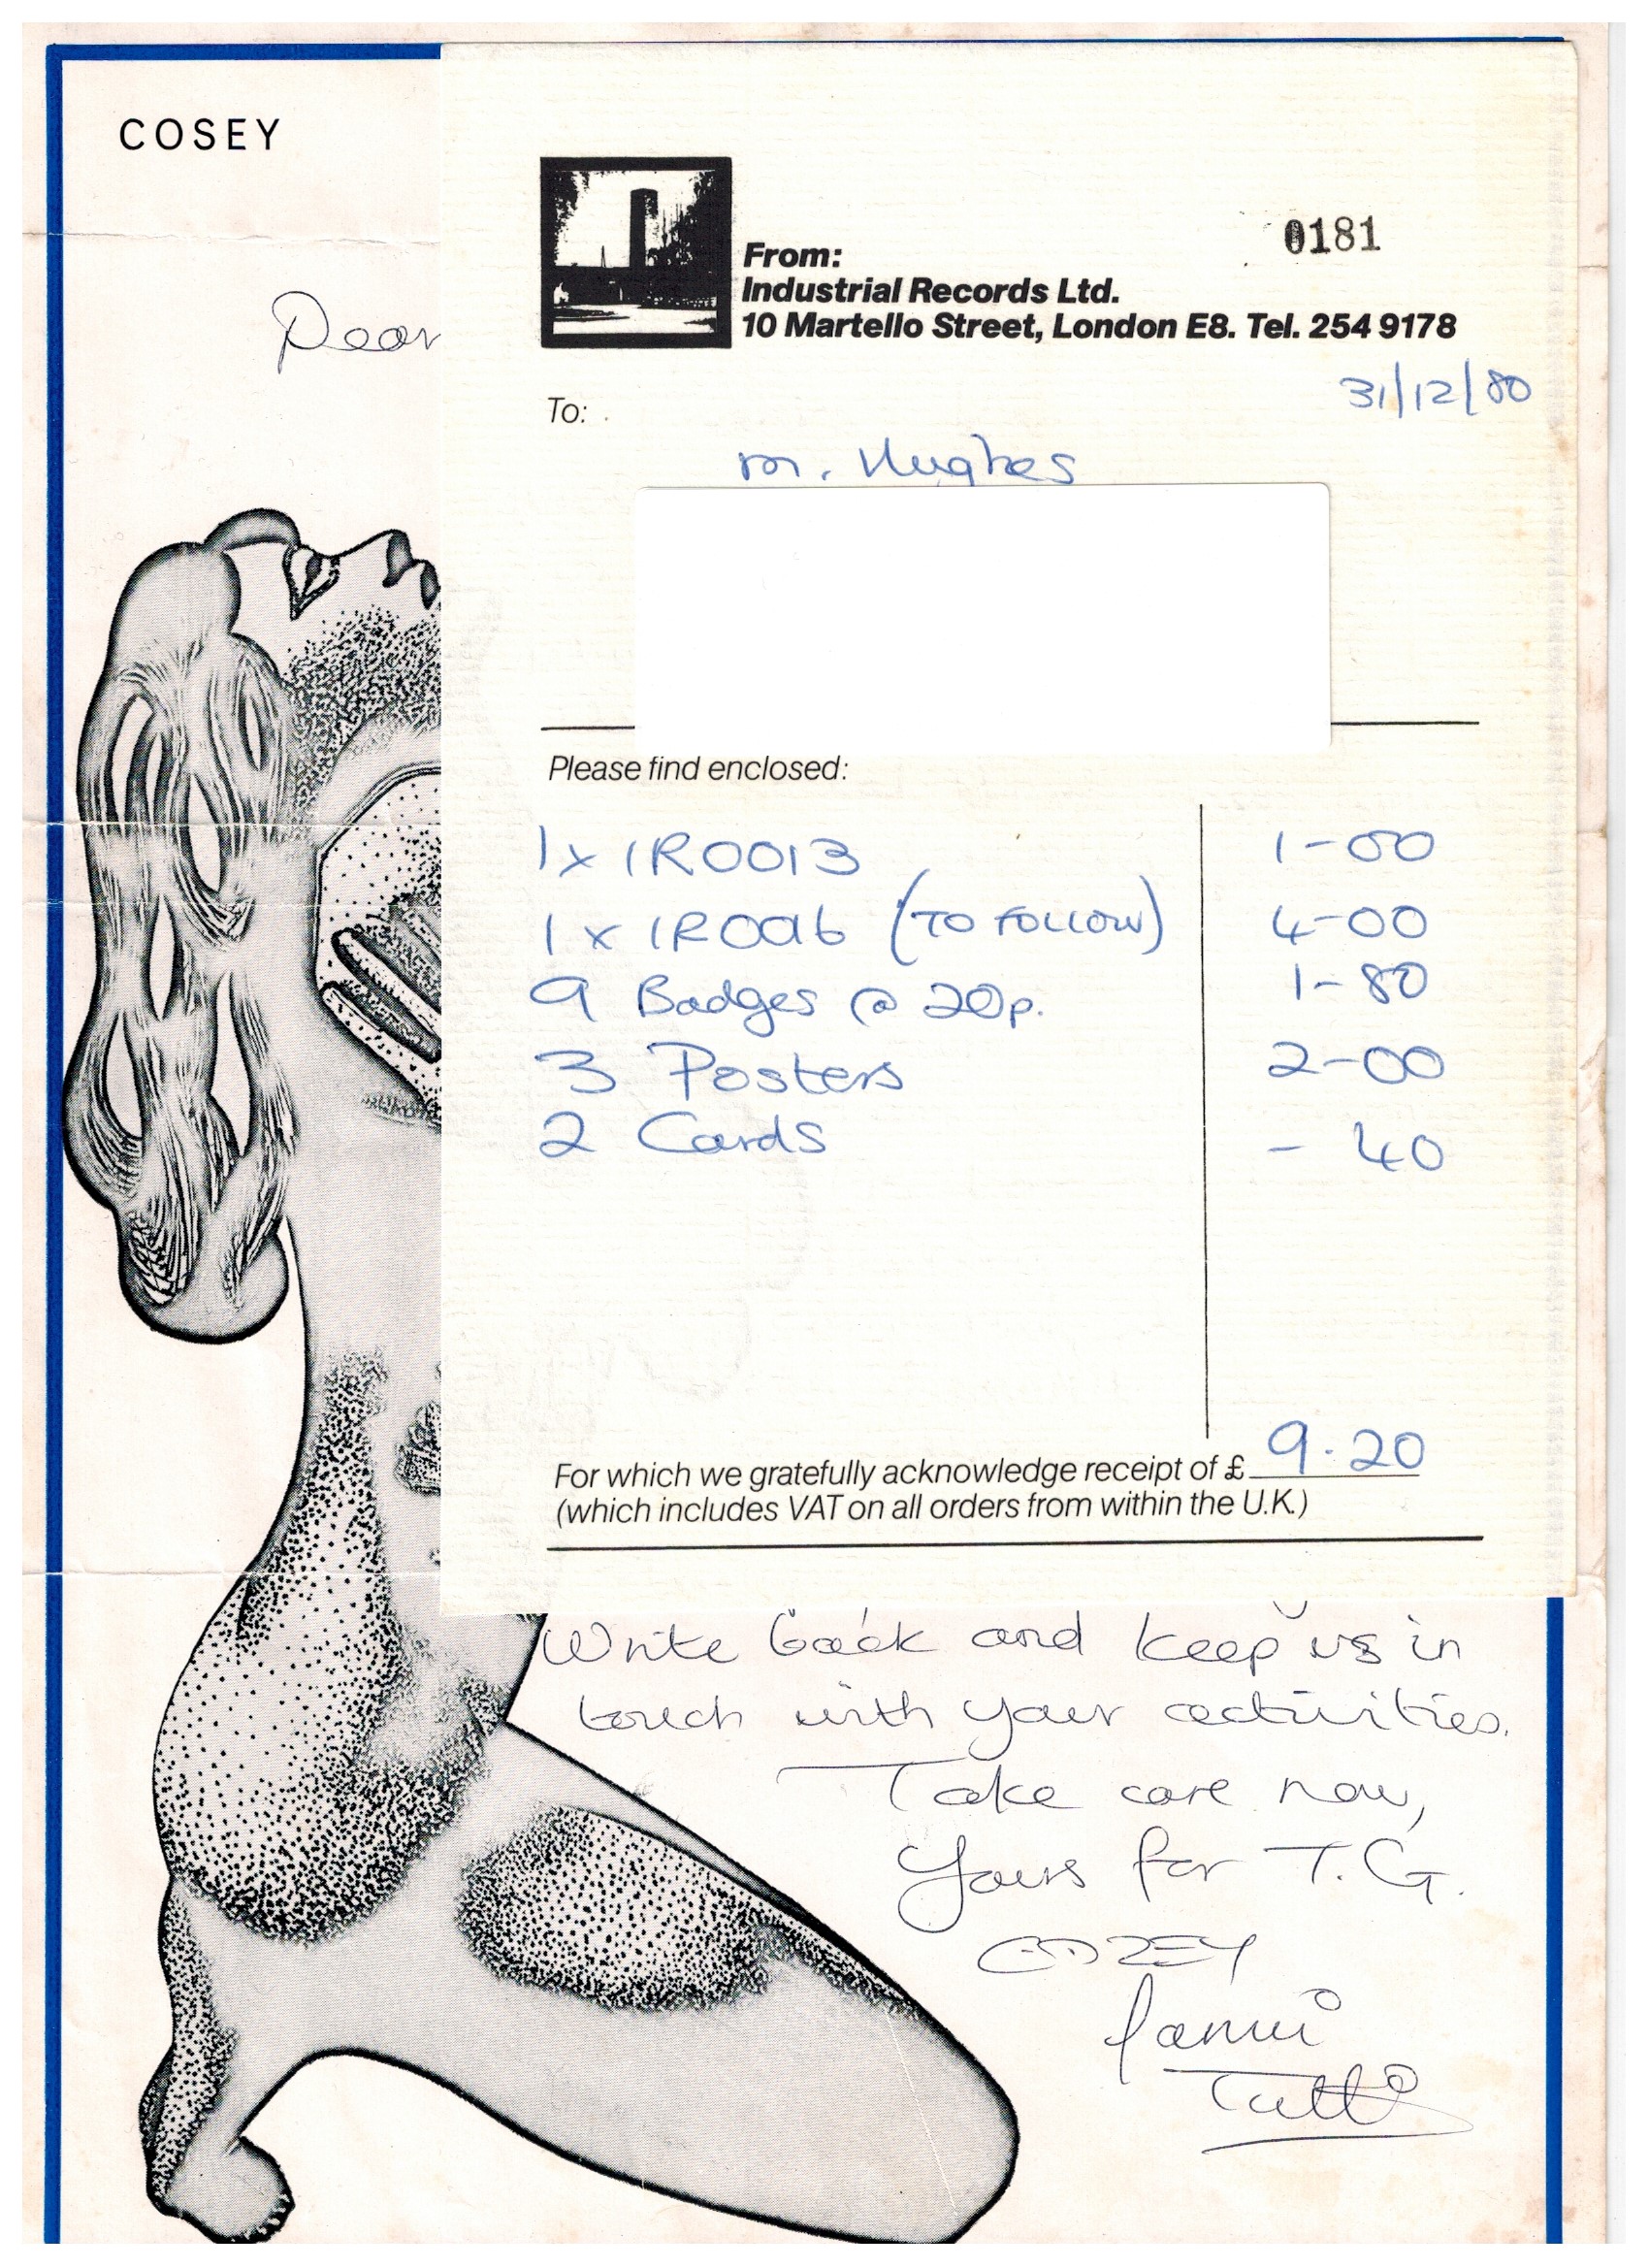 COSEY
0181
From:
Industrial Records Ltd.
10 Martello Street, London E8. Tel. 254 9178
Dear
31/12/80
To:
M. Hughes
Please find enclosed:
1 x IR0013 1-00
1 x (TO FOLLOW) 4-00
9 Badges @ 20p. 1-80
3 Posters 2-00
2 Cards - 40
For which we gratefully acknowledge receipt of £ 9.20
(which includes VAT on all orders from within the U.K.)
Write back and keep us in
touch with your activities.
Take care now,
Yours for T.G.
COSEY
Fanni
Tutti